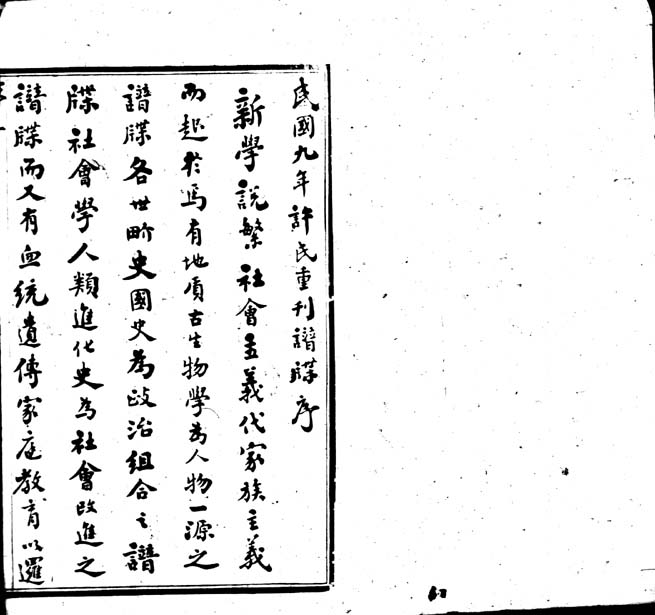 民國九年許氏重刊譜牒序
新學說繁社會主義代家族主義
而起於焉有地質古生物學為人物一源之
譜牒各世界史國史為政治組合之譜
牒社會學人類進化史為社會改進之
譜牒而又有血統遺傳家庭教育以邏